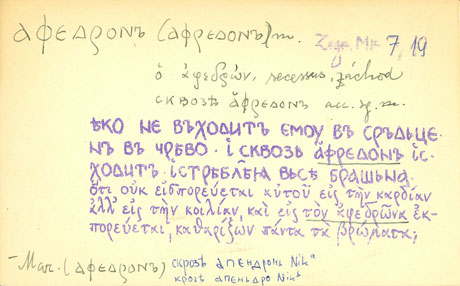 афедронъ (афредонъ) m. Zogr. Mr. 7, 19
ὁ ἀφεδρών, secessus, záchod
сквозѣ афредонъ acc. sg. m.
ѣко не въходитъ емоу въ сръдьце.
нъ въ чрѣво · і сквозѣ афредонъ іс-
ходитъ істрѣблѣѩ вьсѣ брашьна.
ὅτι οὐκ εἰσπορεύεται αὐτοῦ εἰς τὴν καρδίαν
ἀλλ' εἰς τὴν κοιλίαν, καὶ εἰς τὸν ἀφεδρῶνα ἐκ-
πορεύεται, καθαρίζων πάντα τὰ βρώματα;
Mar. (афедронъ) сквозѣ апендронь Nik a
кроѕѣ апеньдро Nik b